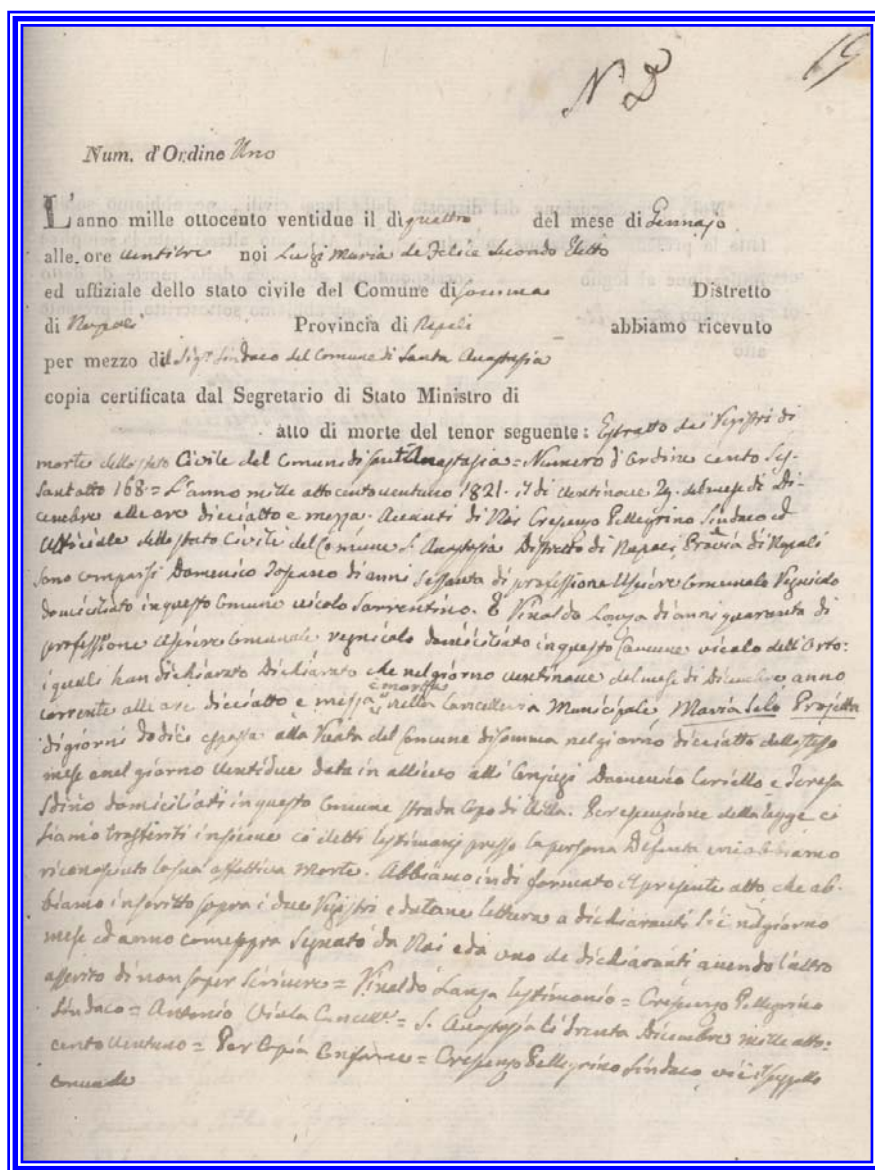 N D
19
Num. d'Ordine Uno
L'anno mille ottocento ventidue il dì quattro del mese di Gennajo
alle ore ventitre noi Luigi Maria de Felice Secondo Eletto
ed uffiziale dello stato civile del Comune di Somma Distretto
di Napoli Provincia di Napoli abbiamo ricevuto
per mezzo del Sigr Sindaco del Comune di Santa Anastasia
copia certificata dal Segretario di Stato Ministro di
atto di morte del tenor seguente: Estratto dei Registri di
morte dello stato Civile del Comune di Sant'Anastasia = Numero d'Ordine cento Ses-
santotto 168 = L'anno mille ottocento ventuno 1821. il di ventinove 29. del mese di Di-
cembre alle ore dieciotto e mezza. Avanti di Noi Crescenzo Pellegrino Sindaco ed
Ufficiale dello stato Civile del Comune S. Anastasia Distretto di Napoli Provia di Napoli
sono comparsi Domenico Toscano di anni Sessanta di professione Usciere Comunale Regnicolo
domiciliato in questo Comune vicolo Sorrentino. E Rinaldo Lanza di anni quaranta di
professione Usciere Comunale regnicolo domiciliato in questo Comune vicolo dell'Orto:
i quali han dichiarato Dichiarato che nel giorno ventinove del mese di Dicembre anno
corrente alle ore dieciotto e mezza è morta nella Cancelleria Municipale, Maria Selo Projetta
di giorni dodici esposa alla Ruota del Comune di Somma nel giorno dieciotto dello stesso
mese e nel giorno ventidue data in allievo alli Conjugi Domenico Ceriello e Teresa
domiciliati in questo Comune strada Capo di Villa. Per esecuzione della legge ci
siamo trasferiti insieme co i detti testimonj presso la persona Defunta e ne abbiamo
riconosciuto la sua effettiva Morte. Abbiamo indi formato il presente atto che ab-
biamo inscritto sopra i due Registri e datane lettura a dichiaranti li è nel giorno
mese ed anno come sopra Segnato da Noi e da uno de dichiaranti avendo l'altro
asserito di non saper scrivere = Rinaldo Lanza testimonio = Crescenzo Pellegrino
Sindaco = Antonio Viola Cancell.e = S. Anastasia li trenta Dicembre mille otto:
cento ventuno = Per Copia Conforme = Crescenzo Pellegrino Sindaco vi è il suggello
comunale